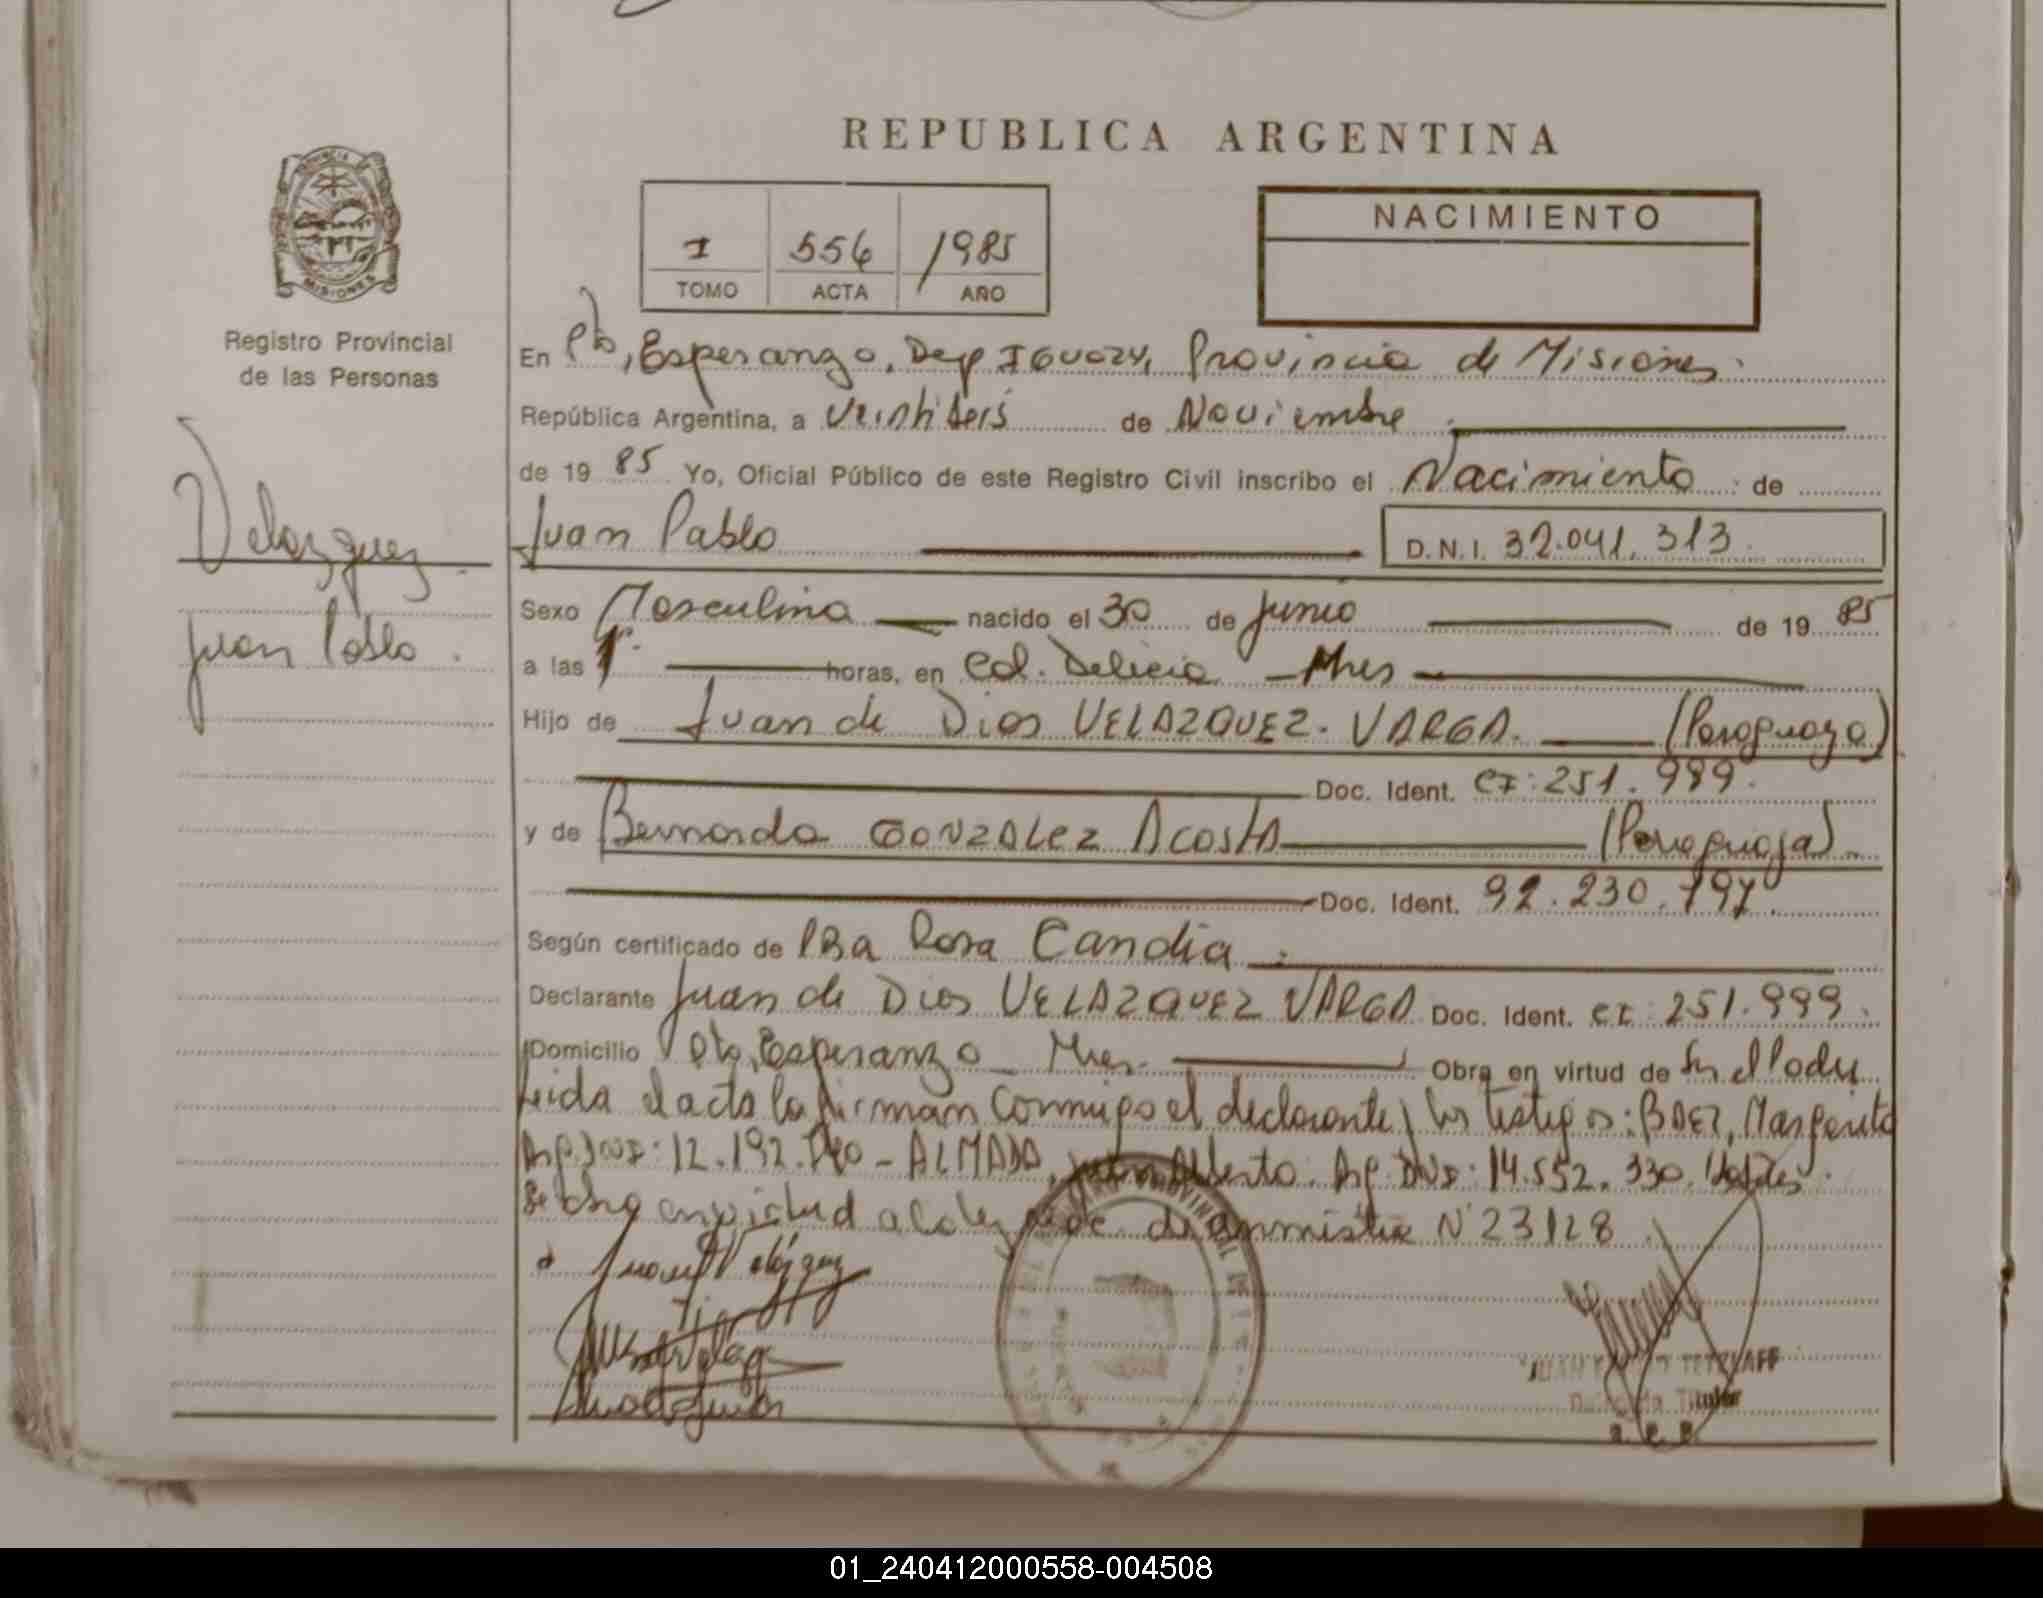 REPUBLICA ARGENTINA
I 556 1985
TOMO ACTA AÑO
NACIMIENTO
PROVINCIA
MISIONES
Registro Provincial
de las Personas
Velazquez
Juan Pablo.
En Pto, Esperanza, Dep IGUAZU, Provincia de Misiones.
República Argentina, a Veintiseis de Noviembre
de 1985 Yo, Oficial Público de este Registro Civil inscribo el Nacimiento de
Juan Pablo D.N.I. 32.041.313
Sexo Masculino nacido el 30 de Junio de 1985
a las 1. horas, en Col. Delicia - Mnes
Hijo de Juan de Dios VELAZQUEZ. VARGA. (Paraguayo)
Doc. Ident. CI: 251.989.
y de Bernarda GONZALEZ ACOSTA (Paraguaya)
Doc. Ident. 92.230.797.
Según certificado de Rosa Candia.
Declarante Juan de Dios VELAZQUEZ VARGA Doc. Ident. CI: 251.999.
Domicilio Pto, Esperanza Mnes. Obra en virtud de
Leida el acta la firman conmigo el declarante y los testigos: BAEZ, Margarita
Arg. 12.192. - ALMADA, Juan Alberto. Arg. DNI: 14.552.330.
Se en virtud a la ley de amnistia Nº 23128
Juan Velázquez
Titular
01_240412000558-004508